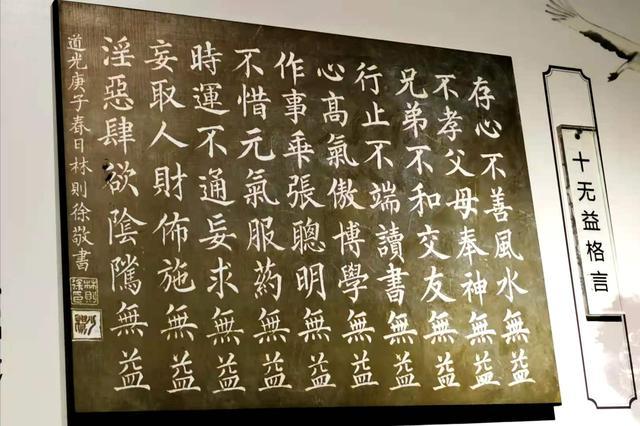 十无益格言
存心不善風水無益
不孝父母奉神無益
兄弟不和交友無益
行止不端讀書無益
心髙氣傲博學無益
作事乖張聰明無益
不惜元氣服葯無益
時運不通妄求無益
妄取人財佈施無益
淫惡肆欲陰騭無益
道光庚子春日林則徐敬書
林則徐印